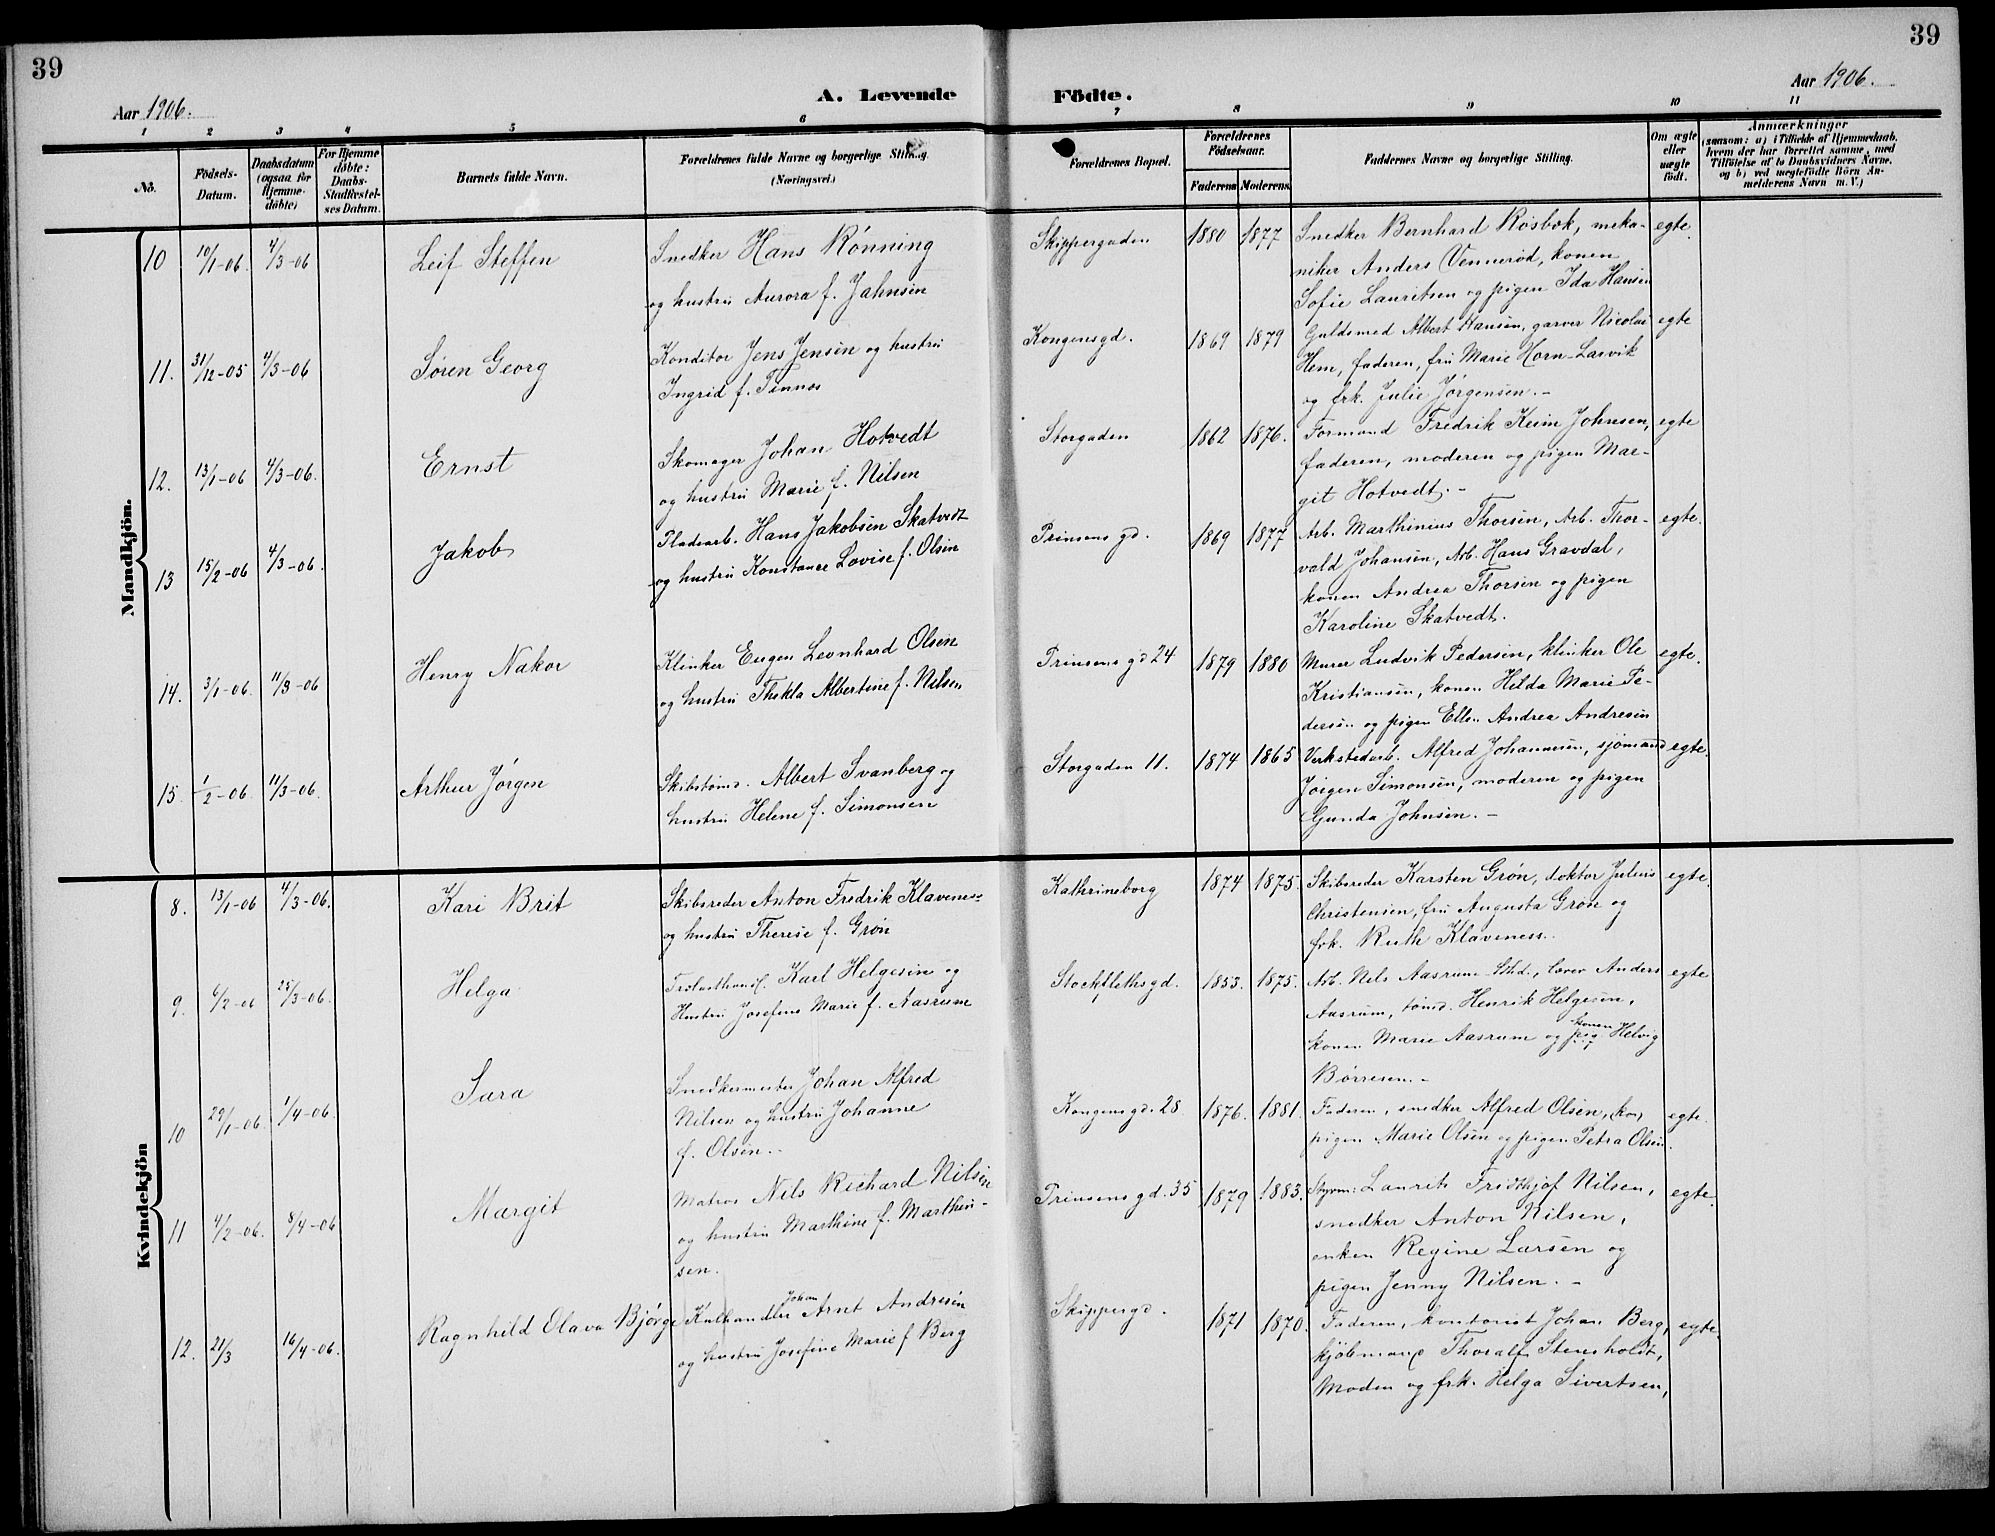 39
39
Aar 1906.
A. Levende Födte.
Aar 1906.
1 2 3 4 5 6 7 8 9 10 11
No.
Födsels-Datum.
Daabsdatum (ogsaa for Hjemme-döbte)
For Hjemme döbte: Daabs-Stadfæstel-ses Datum.
Barnets fulde Navn.
Forældrenes fulde Navne og borgerlige Stilling.
(Næringsvei.)
Forældrenes Bopæl.
Forældrenes Födselsaar.
Faderens Moderens
Faddernes Navne og borgerlige Stilling.
Om ægte eller uægte födt.
Anmærkninger
(saasom: a) i Tilfælde af Hjemmedaab,
hvem der har forrettet samme, med
Tilföielse af to Daabsvidners Navne,
og b) ved uægtefödte Börn An-
melderens Navn m. V.)
Mandkjön.
10 10/1-06. 4/3-06 Leif Steffen
Snedker Hans Rønning
og hustru Aurora f. Jahnsen
Skippergaden 1880 1877
Snedker Bernhard Røsbok, meka-
niker Anders Vennerød, konen
Sofie Lauritsen og pigen Ida Hansen
egte.
11. 31/12-05 4/3-06 Søren Georg
Konditor Jens Jensen og hustru
Ingrid f. Tinnos
Kongensgd. 1869 1879
Guldsmed Albert Hansen, garver Nicolai
Hem, faderen, fru Marie Horn-Larvik
og frk. Julie Jørgensen.-
egte
12. 13/1-06 4/3-06. Ernst
Skomager Johan Hotvedt
og hustru Marie f. Nilsen
Storgaden 1862 1876.
Formand Fredrik Keim Johnsen,
faderen, moderen og pigen Mar-
git Hotvedt.-
egte
13 15/2-06 4/3-06. Jakob
Pladearb. Hans Jakobsen Skatvedt
og hustru Konstance Lovise f. Olsen
Prinsensgd. 1869 1877
Arb. Marthinius Thorsen, Arb. Thor-
vald Johansen, Arb. Hans Gravdal,
konen Andrea Thorsen og pigen
Karoline Skatvedt.
egte.
14. 3/1-06. 11/3-06 Henry Nakor
Klinker Eugen Leonhard Olsen
og hustru Thekla Albertine f. Nilsen
Prinsensgd 24 1879 1880
Murer Ludvik Pedersen, klinker Ole
Kristiansen, konen Hilda Marie Pe-
dersen og pigen Ellen Andrea Andresen
egte.
15. 1/2-06. 11/3-06. Arthur Jørgen
Skibstømd. Albert Svanberg og
hustru Helene f. Simonsen
Storgaden 11. 1874 1865
Verkstedarb. Alfred Johannesen, sjømand
Jørgen Simonsen, moderen og pigen
Gunda Johnsen.-
egte.
Kvindekjön
8. 13/1-06 4/3-06. Kari Brit
Skibsreder Anton Fredrik Klavenes
og hustru Therese f. Grøn
Kathrineborg 1874 1875.
Skibsreder Karsten Grøn, doktor Julius
Christensen, fru Augusta Grøn og
frk. Ruth Klaveness.
egte.
9. 6/2-06 25/3-06. Helga
Karl Helgesen og
Hustru Josefine Marie f. Aasrum
Stockflethsgd. 1853. 1875.
Arb. Nels Aasrum, Anders
Aasrum, tømd. Henrik Helgesen,
konen Marie Aasrum og konen Helvig
Børresen.-
egte
10 29/1-06. 1/4-06. Sara
Snedkermester Johan Alfred
Nilsen og hustru Johanne
f. Olsen..
Kongensgd. 28 1876. 1881.
Faderen, snedker Alfred Olsen,
pigen Marie Olsen og pigen Petra Olsen.
egte.
11 4/2-06. 8/4-06 Margit
Matros Nils Richard Nilsen
og hustru Marthine f. Marthin-
sen.
Prinsensgd. 35 1879 1883.
Styrm: Laurits Fridthjof Nilsen,
snedker Anton Nilsen,
enken Regine Larsen og
pigen Jenny Nilsen.-
egte.
12. 21/3 16/4-06. Ragnhild Olava Bjørge
Kulhandler Johan Arnt Andresen
og hustru Josefine Marie f Berg
Skippergd. 1871 1870.
Faderen, kontorist Johan Berg,
kjøbmand Thoralf Stensholdt,
Moden og frk. Helga Sivertsen,
egte.